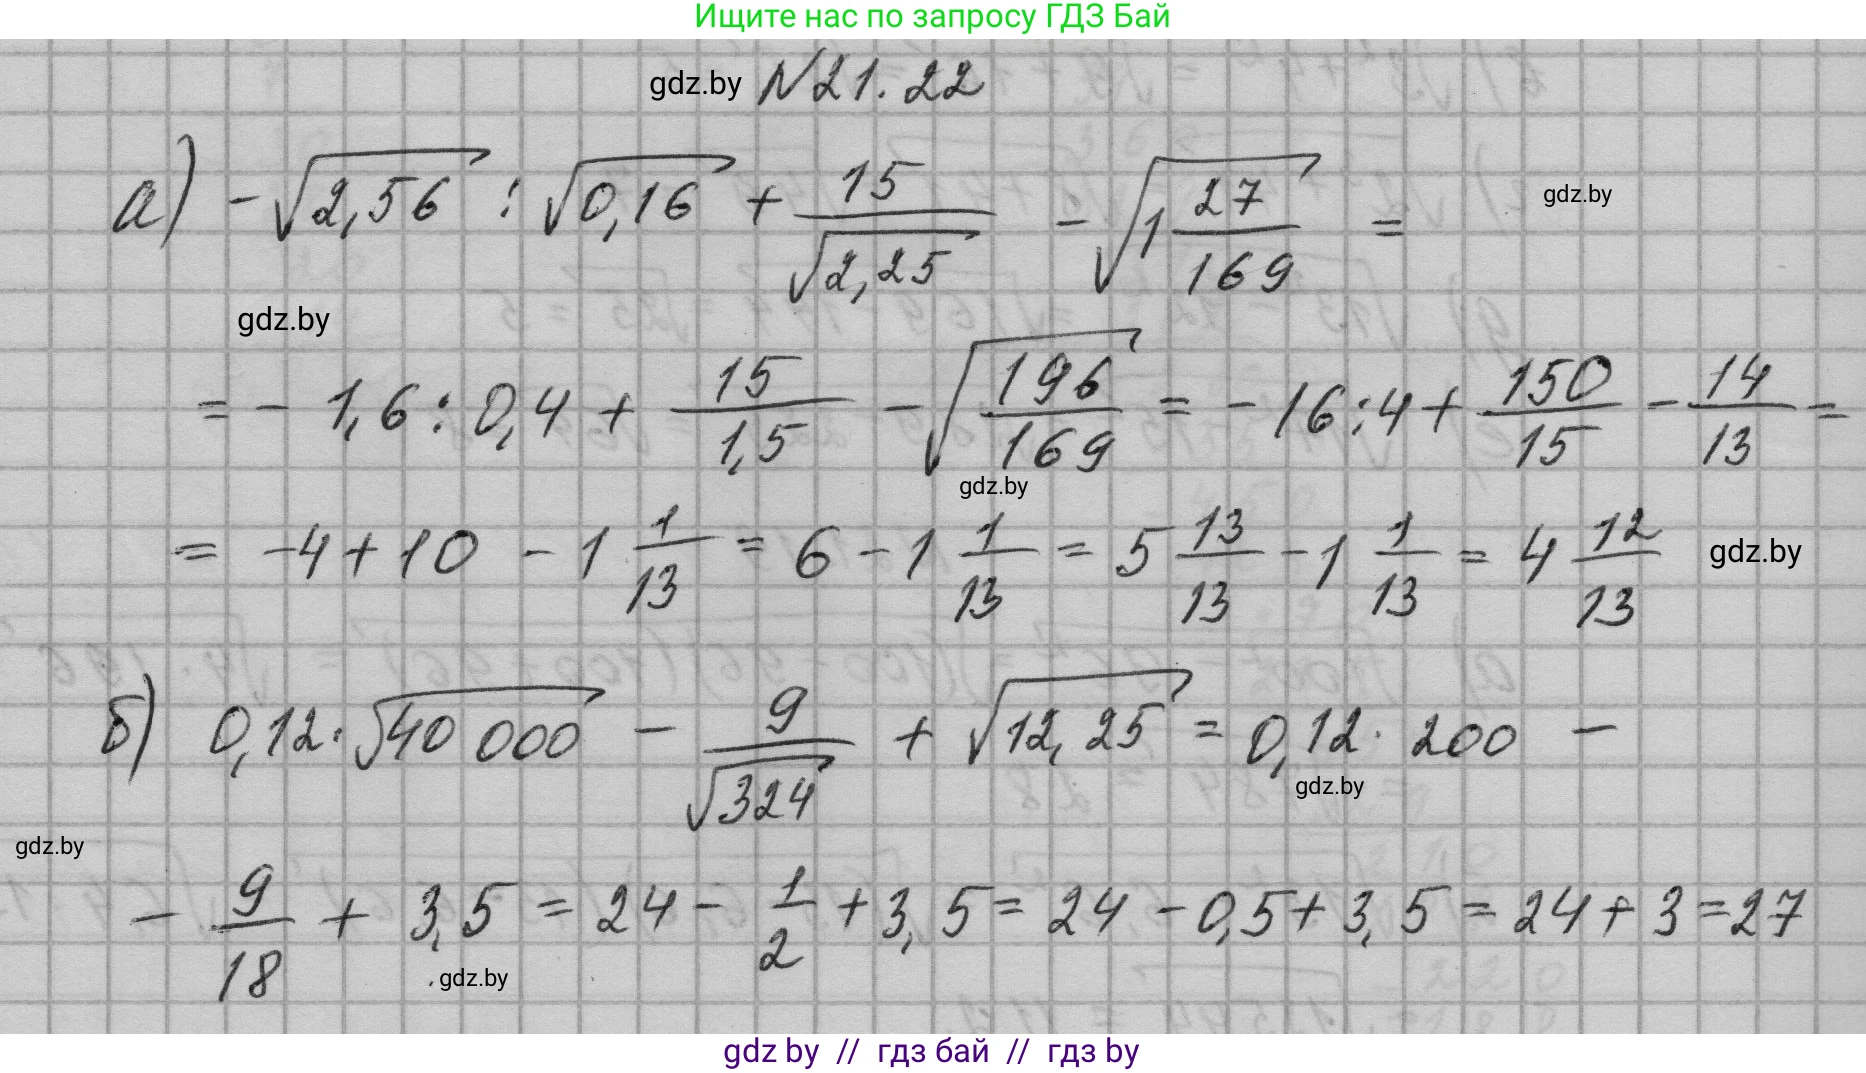 Ищите нас по запросу ГДЗ Бай
gdz.by №21.22
а) -√2,56 : √0,16 + 15/√2,25 - √(1 27/169) = gdz.by
gdz.by
= - 1,6 : 0,4 + 15/1,5 - √(196/169) = - 16 : 4 + 150/15 - 14/13 =
gdz.by
= -4 + 10 - 1 1/13 = 6 - 1 1/13 = 5 13/13 - 1 1/13 = 4 12/13 gdz.by
б) 0,12 · √40 000 - 9/√324 + √12,25 = 0,12 · 200 -
gdz.by
gdz.by
- 9/18 + 3,5 = 24 - 1/2 + 3,5 = 24 - 0,5 + 3,5 = 24 + 3 = 27
gdz.by
gdz by // гдз бай // гдз by